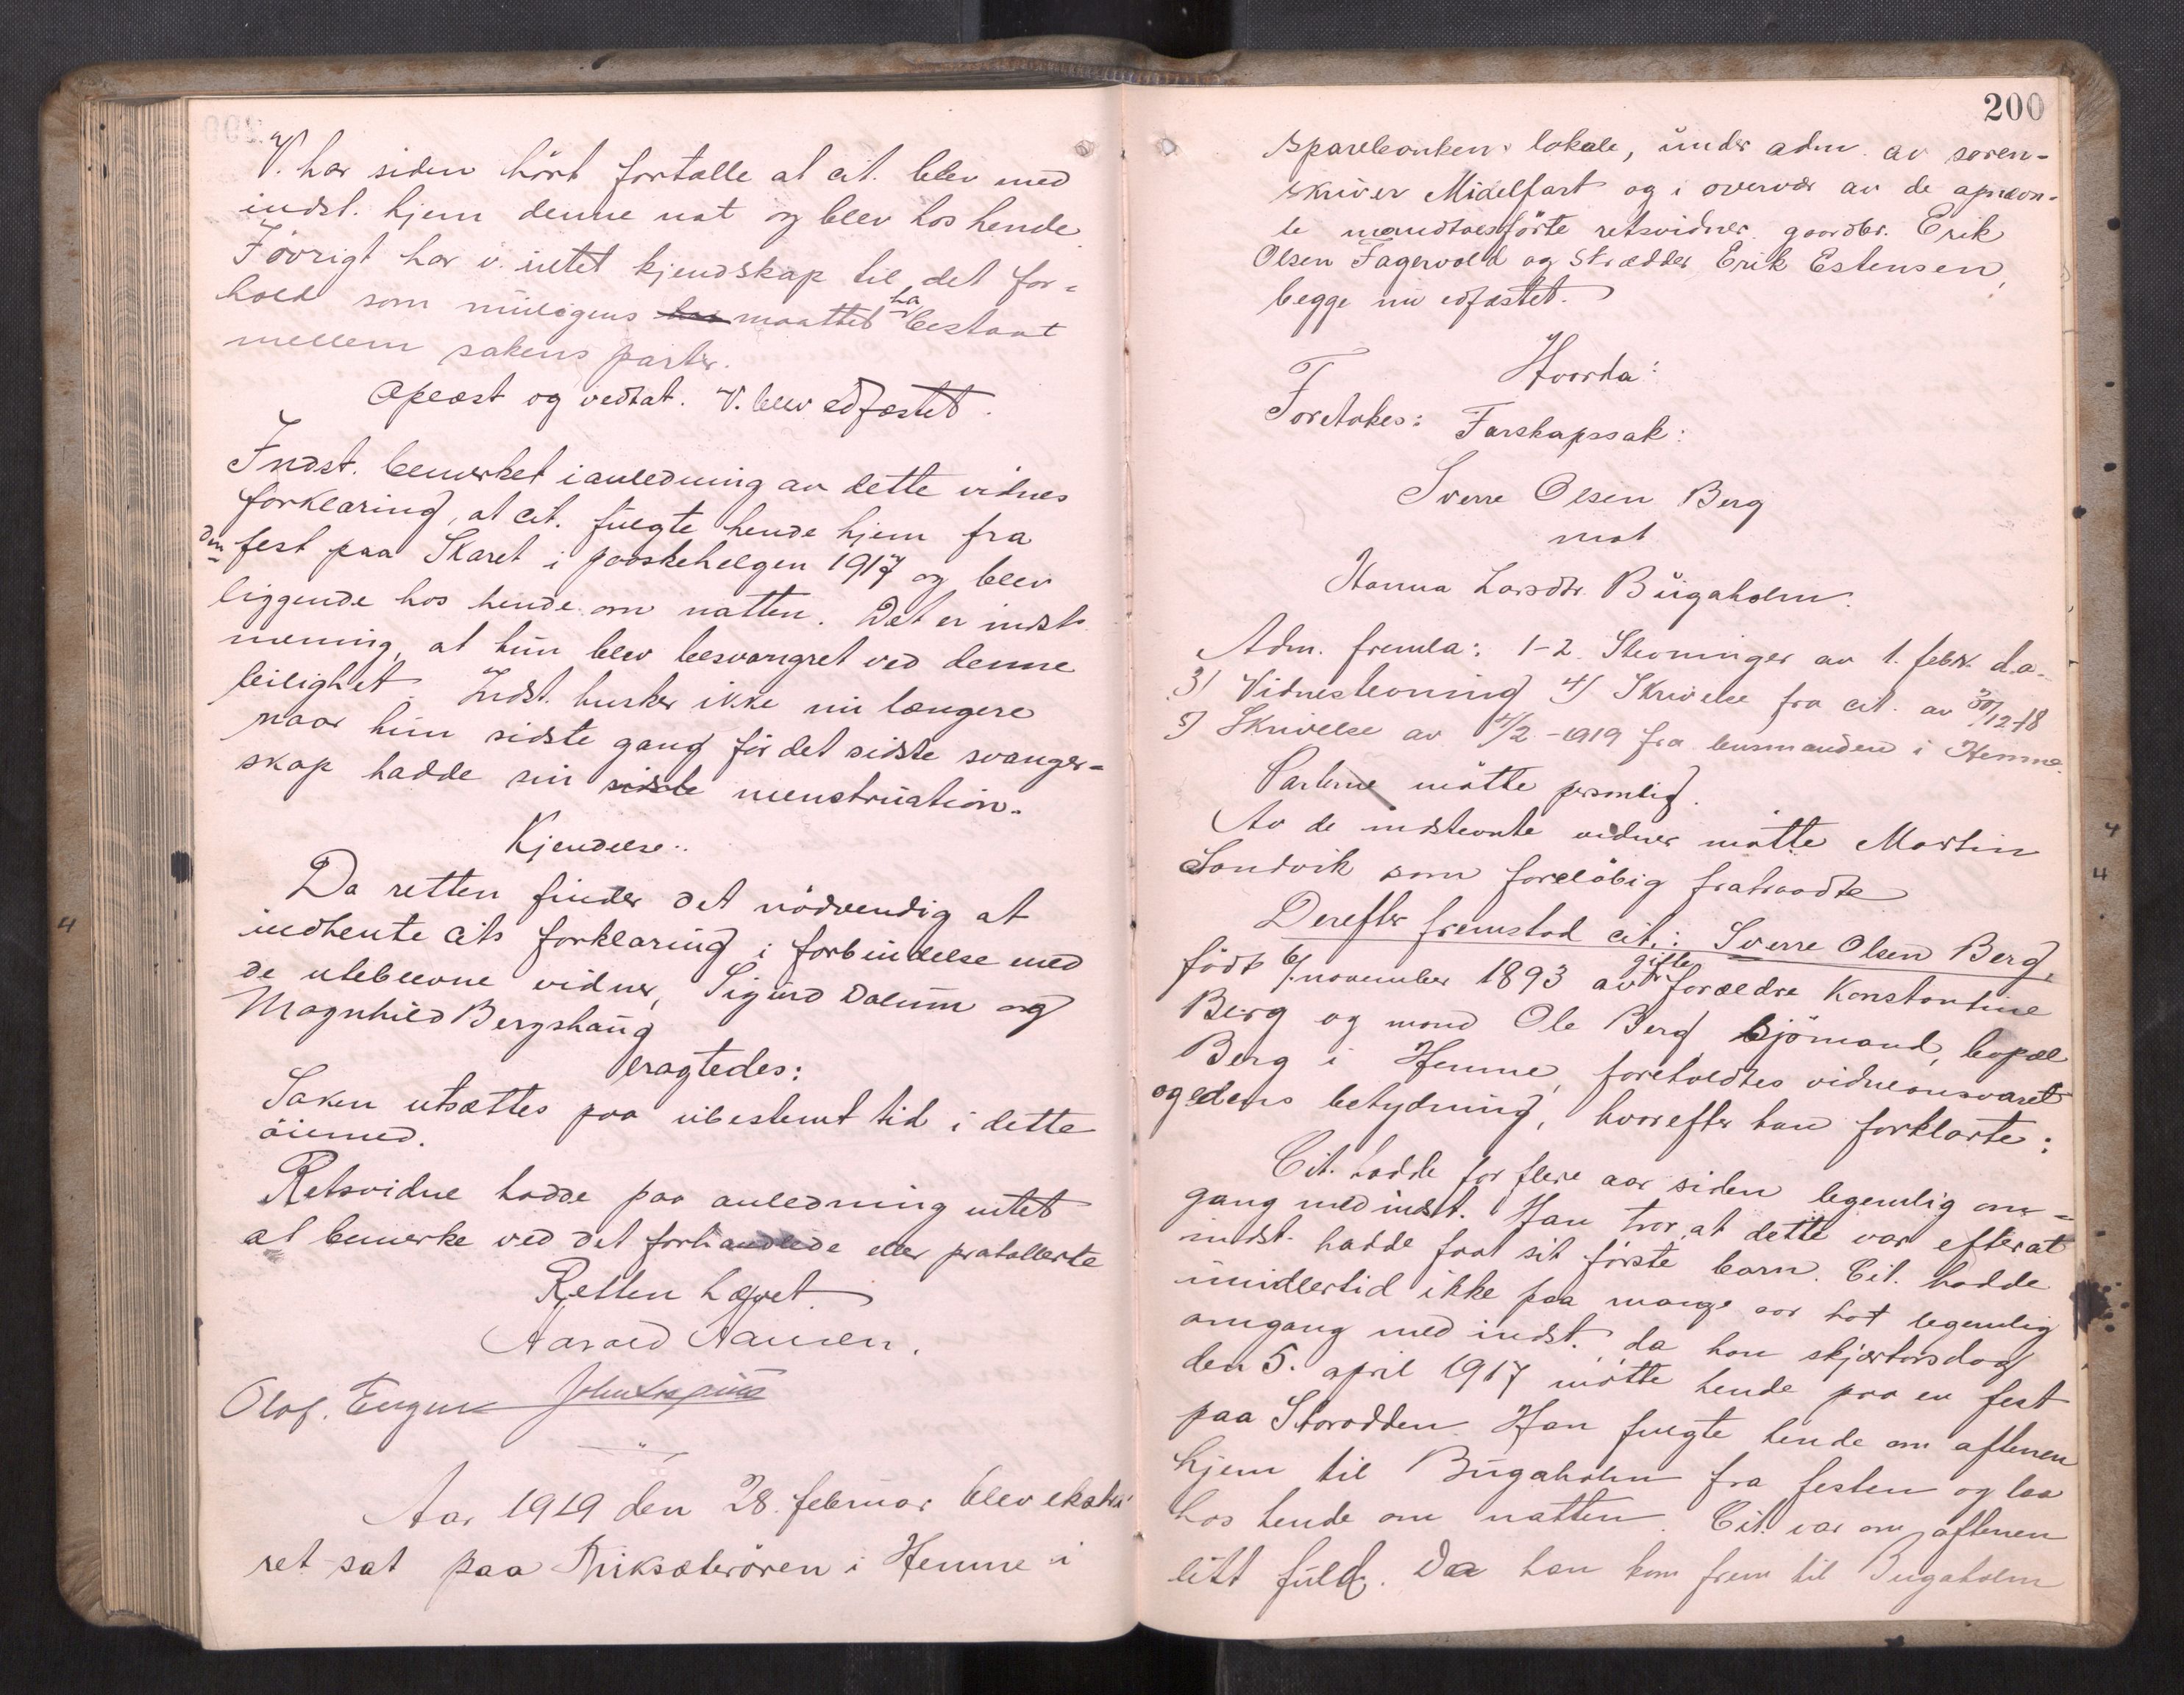 V. har siden hört fortælle at cit. blev med
indst. hjem denne nat og blev hos hende.
Iövrigt har v. intet kjendskap til det for=
hold som muligens har maattet ha bestaat
mellem sakens parter.
Oplæst og vedtat. V. blev edfæstet.
Indst. bemerket i anledning av dette vidnes
forklaring, at cit. fulgte hende hjem fra
den fest paa Skaret i paaskehelgen 1917 og blev
liggende hos hende om natten. Det er indsts
mening, at hun blev besvangret ved denne
leilighet. Indst. husker ikke nu længere
naar hun sidste gang för det sidste svanger=
skap hadde sin sidste menstruation.
Kjendelse:
Da retten finder det nödvendig at
indhente cits forklaring i forbindelse med
de uteblevne vidner, Sigurd Dalum og
Magnhild Bergshaug
eragtedes:
Saken utsættes paa ubestemt tid i dette
öiemed.
Retsvidne hadde paa anledning intet
at bemerke ved det forhandlede eller protollerte
Retten hævet.
Harald Hansen.
Olaf.
Aar 1919 den 28. februar blev ekstra
ret sat paa Kirksæterören i Hemne i
200
sparebankens lokale, under adm. av soren-
skriver Midelfart og i overvær av de opnævn-
te mandtalsförte retsvidner gaardbr. Erik
Olsen Fagervold og skrædder Erik Estensen,
begge nu edfæstet.
Hvorda:
Foretokes: Farskapssak:
Sverre Olsen Berg
mot
Hanna Larsdtr. Bugaholm.
Adm. fremla: 1-2. Stevninger av 1. febr. d.a.
3) Vidnestevning 4) Skrivelse fra cit. av 30/12-18
5) Skrivelse av 4/2-1919 fra lensmanden i Hemne.
Parterne mötte personlig.
Av de indstevnte vidner mötte Martin
Sandvik som foreløbig fratraadte
Derefter fremstod cit.: Sverre Olsen Berg,
födt 6/november 1893 av gifte forældre Konstantine
Berg og mand Ole Berg sjömand, bopæl
Berg i Hemne, foreholdtes vidneansvaret
og edens betydning, hvorefter han forklarte:
Cit. hadde for flere aar siden legemlig om=
gang med indst. Han tror, at dette var efterat
indst. hadde faat sit förste barn. Cit. hadde
imidlertid ikke paa mange aar hat legemlig
omgang med indst. da han skjærtorsdag
den 5. april 1917 mötte hende paa en fest
paa Storodden. Han fulgte hende om aftenen
hjem til Bugaholm fra festen og laa
hos hende om natten. Cit. var om aftenen
litt fuld. Da han kom frem til Bugaholm